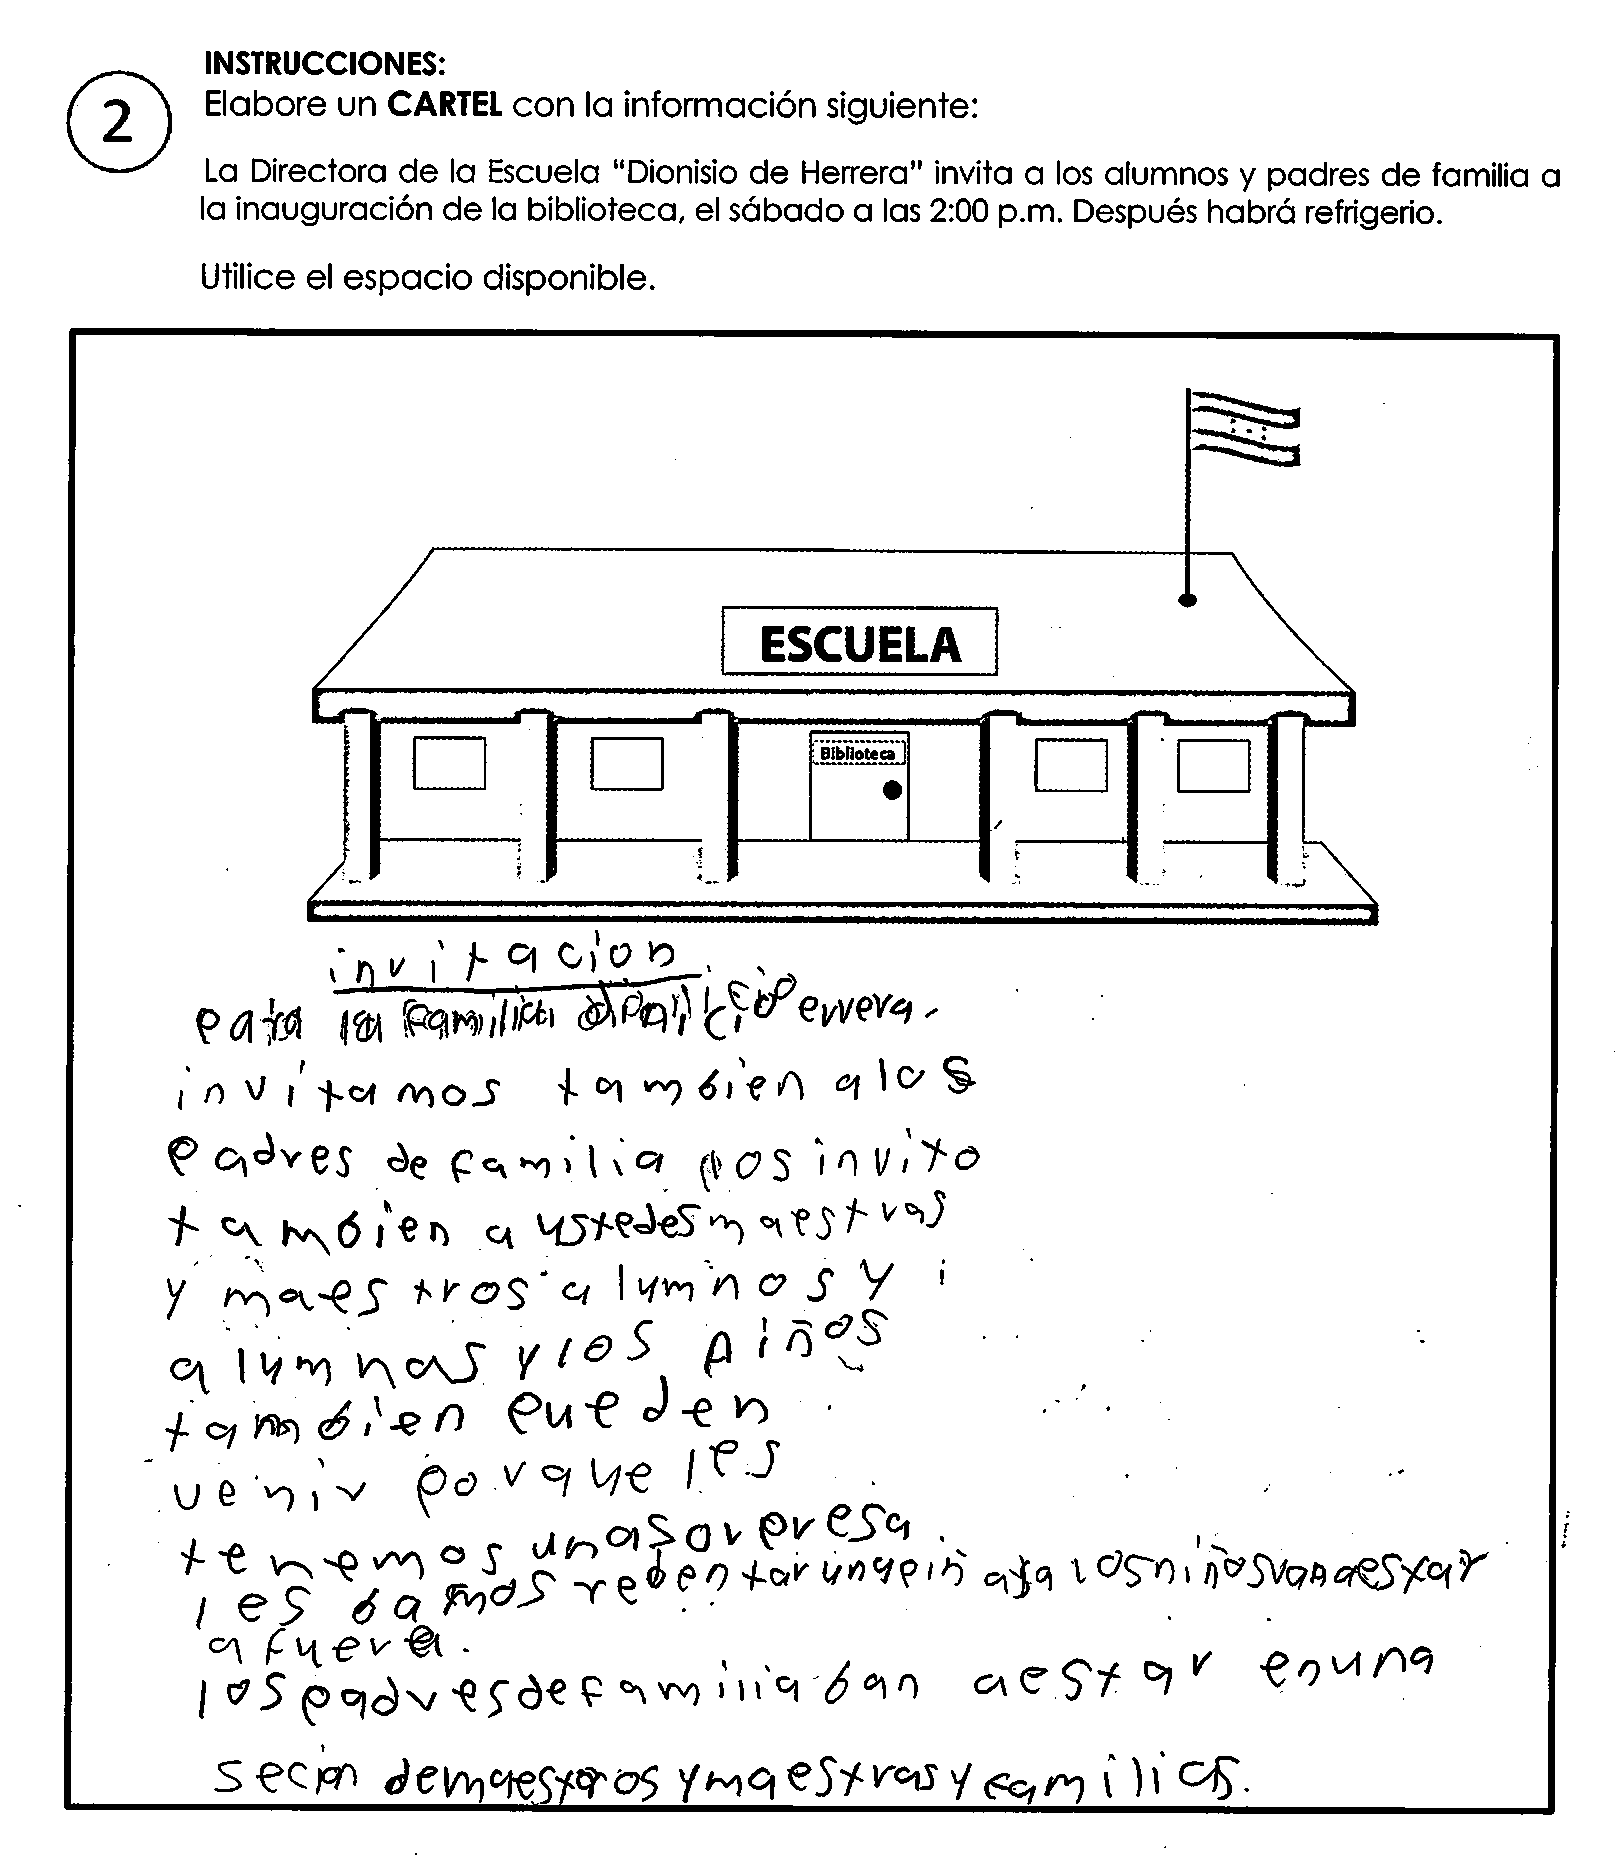 2
INSTRUCCIONES:
Elabore un CARTEL con la información siguiente:
La Directora de la Escuela "Dionisio de Herrera" invita a los alumnos y padres de familia a
la inauguración de la biblioteca, el sábado a las 2:00 p.m. Después habrá refrigerio.
Utilice el espacio disponible.
ESCUELA
Biblioteca
invitacion
para la familia dionicio errera.
invitamos tambien a los
padres de familia pos invito
tambien a ustedes maestras
y maestros alumnos y
alumnas y los niños
tambien pueden
venir porque les
tenemos una sorpresa.
les bamos rebentar una piñata los niños van a estar
a fuera.
los padres de familia ban a estar en una
secion de maestros y maestras y familias.